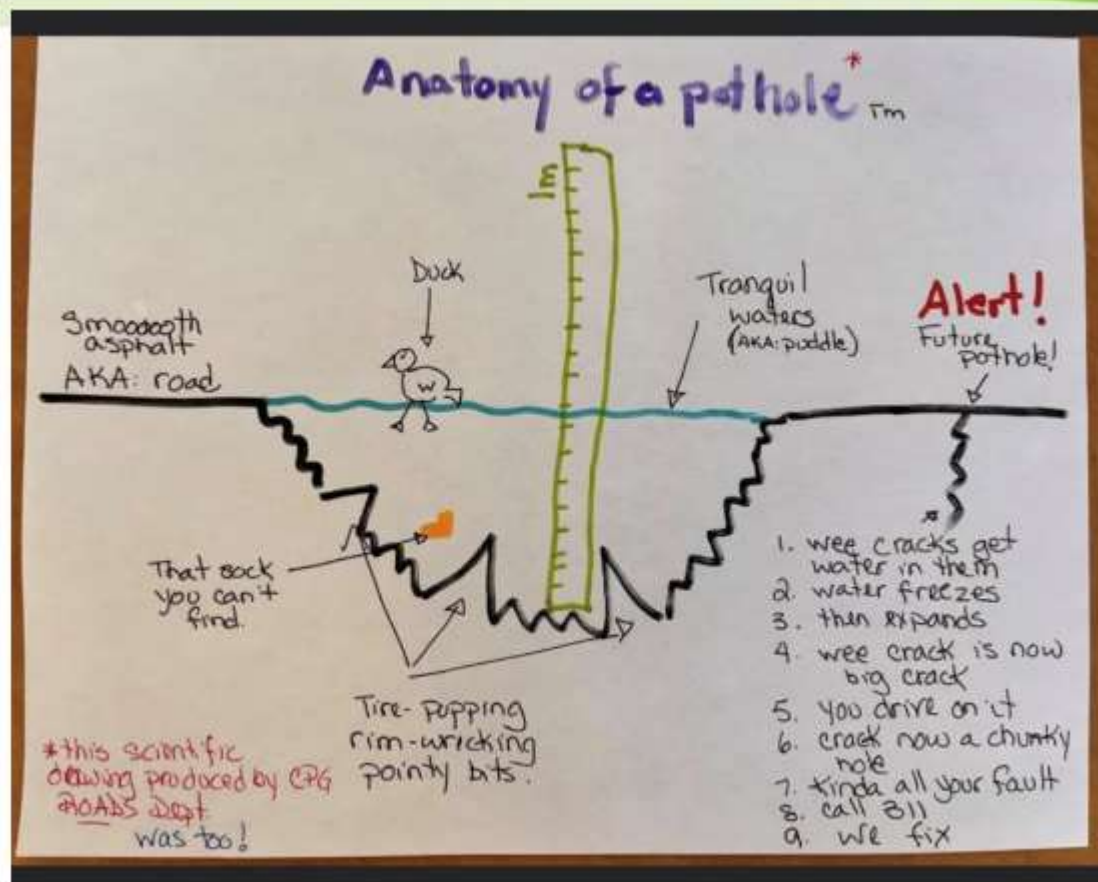 Anatomy of a pothole* Tm
1m
Duck
Smooooooth
asphalt
AKA: road
Tranquil
waters
(AKA: puddle)
Alert!
Future
pothole!
That sock
you can't
find.
Tire-popping
rim-wrecking
pointy bits.
1. wee cracks get
water in them
2. water freezes
3. then expands
4. wee crack is now
big crack
5. you drive on it
6. crack now a chunky
hole
7. kinda all your fault
8. call 311
9. we fix
*this scientific
drawing produced by CPG
ROADS Dept
was too!